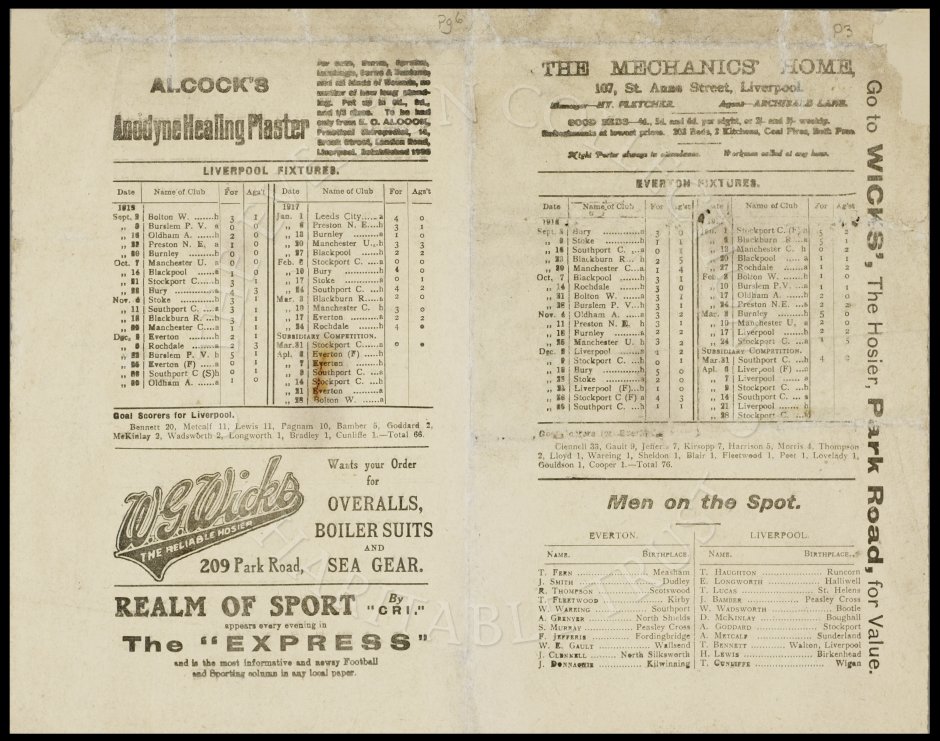 Pg 6
ALCOCK'S
Anodyne Healing Plaster
LIVERPOOL FIXTURES.
Date Name of Club For Aga't Date Name of Club For Aga't
1916 1917
Sept. 2 Bolton W. .......h 3 1 Jan. 1 Leeds City.....a 4 0
Burslem P. V. a 0 0 Preston N. E...h 3 1
16 Oldham A. ...h 2 0 13 Burnley .......a 1 0
Preston N. E, a 1 0 20 Manchester U..h 3 3
Burnley ........h 0 0 27 Blackpool .....a 2 2
Oct. 7 Manchester U. a 0 0 Feb. Stockport C. ...a 2 2
14 Blackpool .....a 1 0 10 Bury .........h 4 0
21 Stockport C....h 3 1 17 Stoke ........a 0 1
28 Bury ...........a 4 3 24 Southport C. ...h 4 2
Nov. 4 Stoke .........h 3 1 Mar. 3 Blackburn R.....a 2 0
11 Southport C. ...a 3 1 10 Manchester C. h 3 0
18 Blackburn R....h 3 1 17 Everton .......a 2 2
Manchester C...a 1 1 24 Rochdale .......h 4 0
Dec. Everton .......h 2 1 SUBSIDIARY COMPETITION.
Rochdale ......a 2 3 Mar. 31 Stockport C.....a 0 0
Burslem P. V. h 5 1 Apl. Everton (F) ....h
Everton (F) ....a 0 1 7 Everton .......h
Southport C (S)h 0 1 Southport C. ...a
30 Oldham A. .....a 1 0 14 Stockport C. ...h
21 Everton .......a
28 Bolton W. .....a
Goal Scorers for Liverpool.
Bennett 20, Metcalf 11, Lewis 11, Pagnam 10, Bamber 5, Goddard 2,
McKinlay 2, Wadsworth 2, Longworth 1, Bradley 1, Cunliffe 1.—Total 66.
W.G. Wicks
THE RELIABLE HOSIER
209 Park Road,
Wants your Order
for
OVERALLS,
BOILER SUITS
AND
SEA GEAR.
REALM OF SPORT By "CRI."
appears every evening in
The "EXPRESS"
and is the most informative and newsy Football
and Sporting column in any local paper.
P3
THE MECHANICS' HOME,
107, St. Anne Street, Liverpool.
Manager—HY. FLETCHER. Agent—ARCHIBALD LANE.
GOOD BEDS—4d., 5d. and 6d. per night, or 2/- and 3/- weekly.
Refreshments at lowest prices. 202 Beds, 2 Kitchens, Coal Fires, Bath Free.
Night Porter always in attendance. Workmen called at any hour.
EVERTON FIXTURES.
Date Name of Club For Ag'st Date Name of Club For Ag'st
Sept. Bury Jan. 1 Stockport C. (F)
Stoke 1 1 Blackburn R. 2 1
16 Southport C. Manchester C. h 0 2
23 Blackburn R. 2 5 20 Blackpool 1
Manchester C. 4 1 27 Rochdale 1 2
Oct. 7 Blackpool 3 1 Feb. Bolton W. 2 0
14 Rochdale 3 0 10 Burslem P.V. 1 1
21 Bolton W. 3 17 Oldham A. 2 0
28 Burslem P. V. 3 1 24 Preston N.E.
Nov. 4 Oldham A. 2 Mar. 3 Burnley 5 0
11 Preston N. E. 3 1 Manchester U. 2
Burnley 2 2 17 Liverpool 2 2
Manchester U. h 3 2 24 Stockport C. 1
Dec. 2 Liverpool 1 2 SUBSIDIARY COMPETITION.
Stockport C. 0 1 Mar. 31 Southport C.
Bury 5 0 Apl. 6 Liverpool (F)
23 Stoke 2 0 7 Liverpool
25 Liverpool (F) 1 0 Stockport C.
26 Stockport C (F) 4 3 14 Southport C.
Southport C. 1 21 Liverpool
28 Stockport C.
Clennell 33, Gault 9, Jefferis 7, Kirsopp 7, Harrison 5, Morris 4, Thompson
2, Lloyd 1, Wareing 1, Sheldon 1, Blair 1, Fleetwood 1, Peet 1, Lovelady 1,
Gouldson 1, Cooper 1.—Total 76.
Men on the Spot.
EVERTON. LIVERPOOL.
NAME. BIRTHPLACE. NAME. BIRTHPLACE.
T. FERN Measham T. HAUGHTON Runcorn
J. SMITH Dudley E. LONGWORTH Halliwell
R. THOMPSON Scotswood T. LUCAS St. Helens
T. FLEETWOOD Kirby J. BAMBER Peasley Cross
W. WAREING Southport W. WADSWORTH Bootle
A. GRENYER North Shields D. MCKINLAY Boughall
S. MURRAY Peasley Cross A. GODDARD Stockport
F. JEFFERIS Fordingbridge A. METCALF Sunderland
W. E. GAULT Wallsend T. BENNETT Walton, Liverpool
J. CLENNELL North Silksworth H. LEWIS Birkenhead
J. DONNACHIE Kilwinning T. CUNLIFFE Wigan
Go to WICKS', The Hosier, Park Road, for Value.
CHARITABLE TRUST